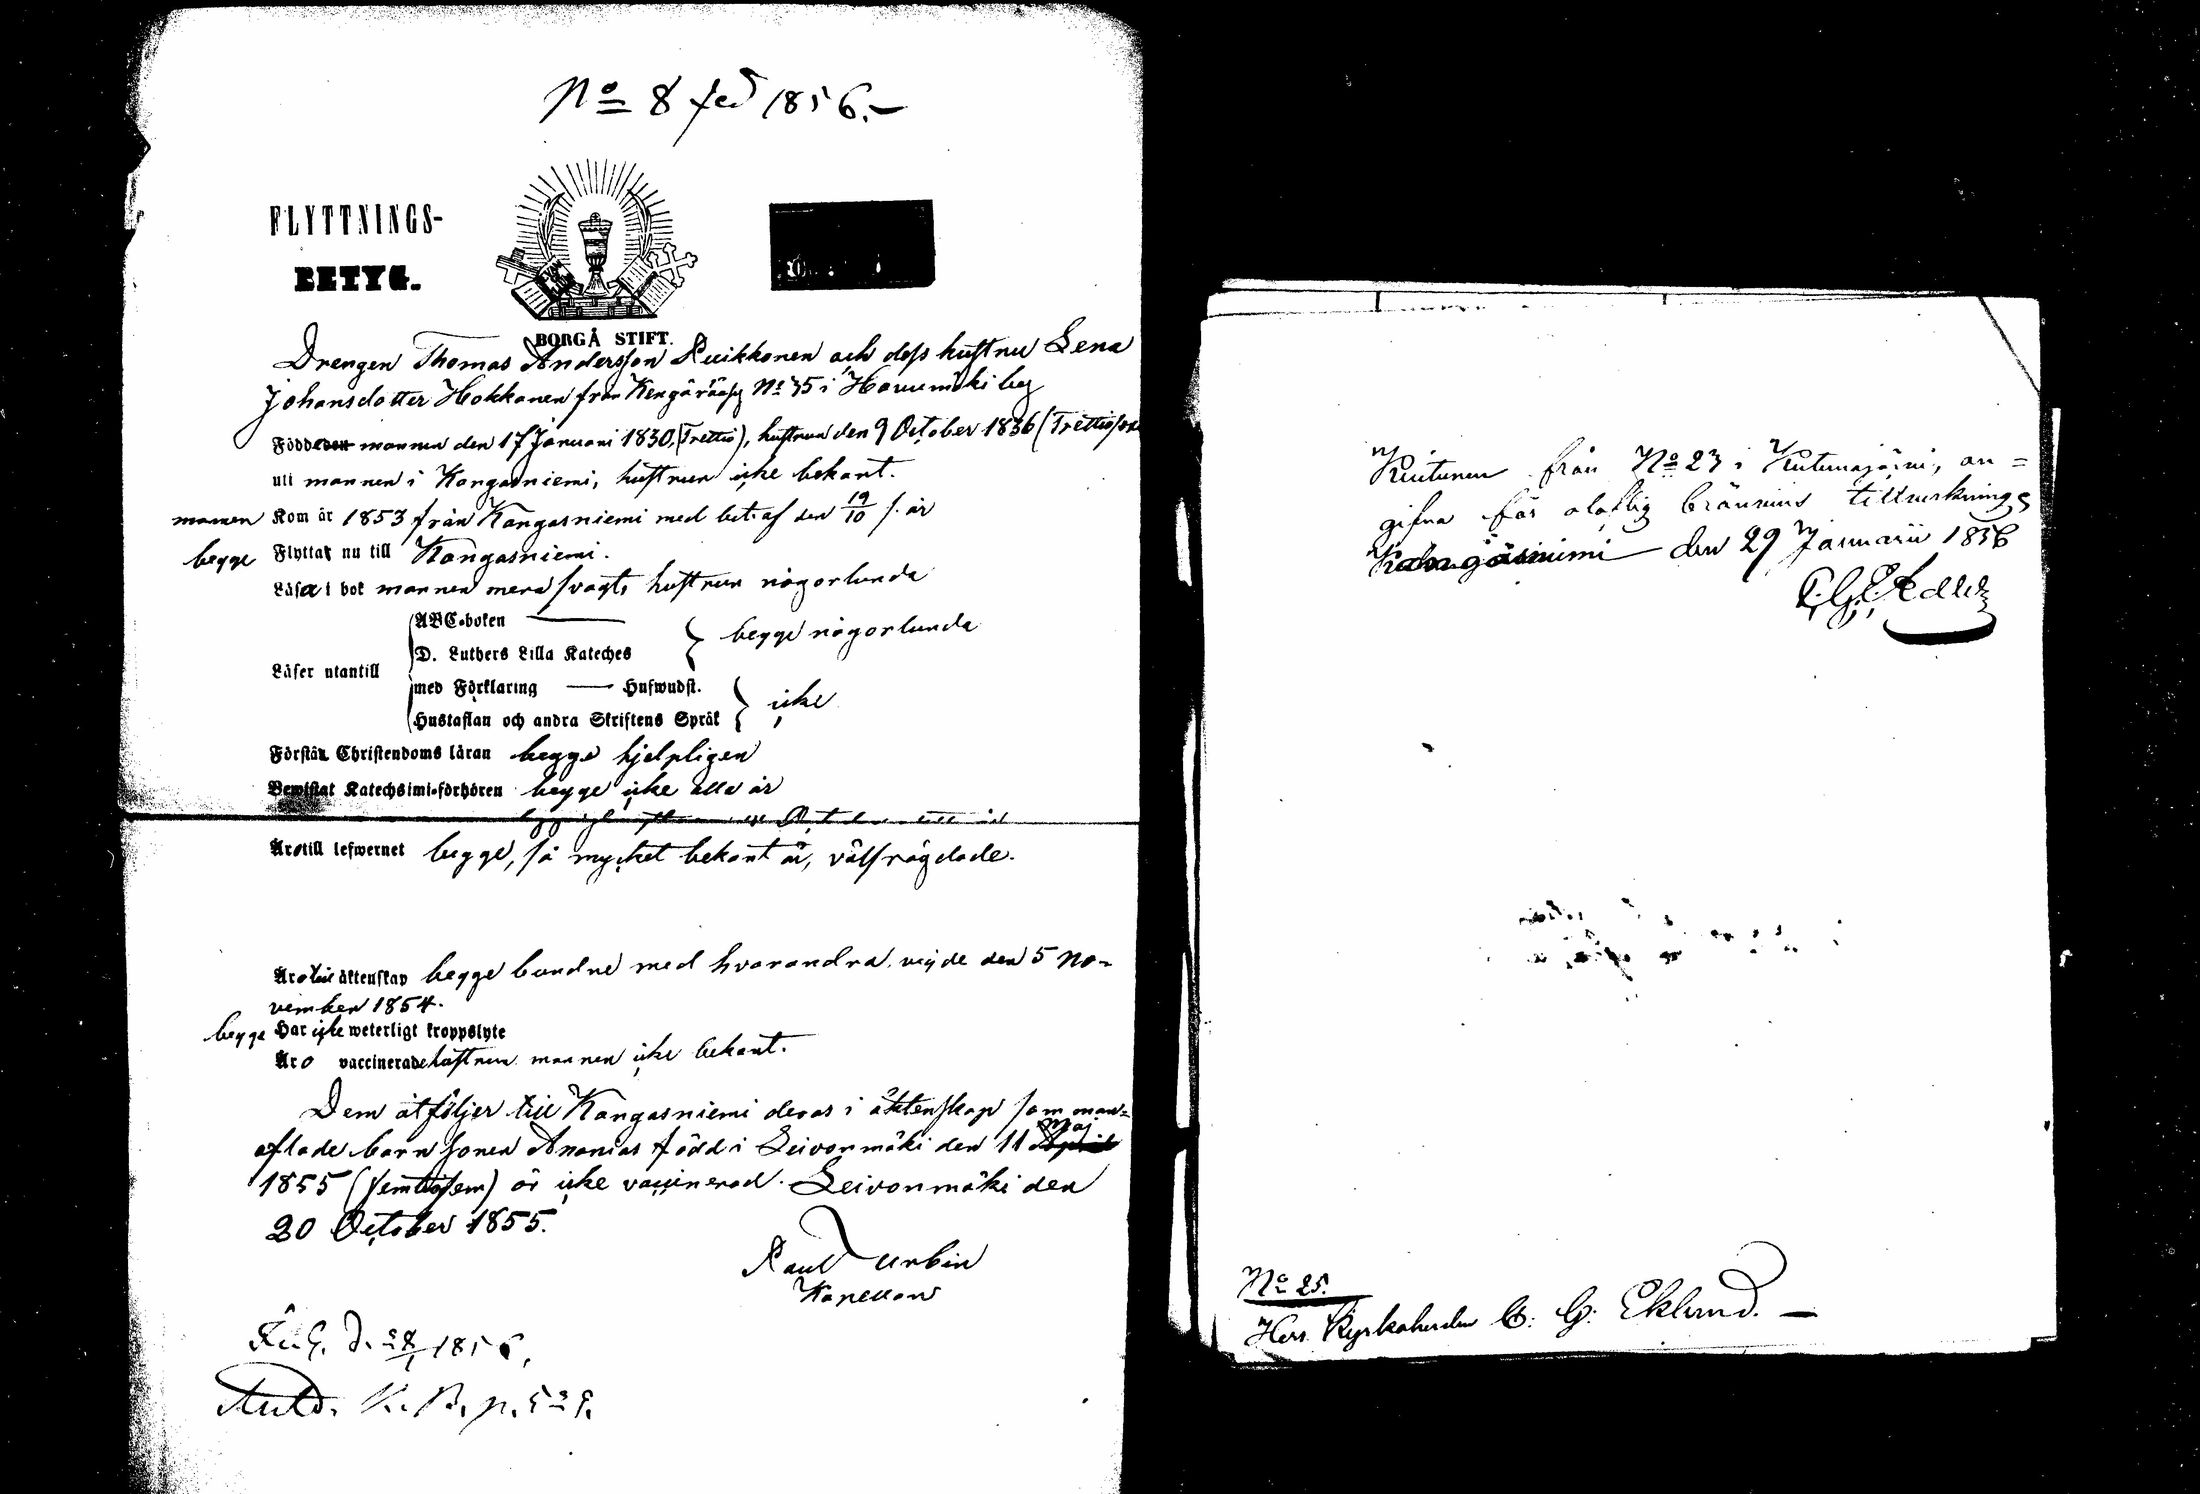 No 8 1856.
FLYTTNINGS-
BETYG.
BORGÅ STIFT.
Drengen Thomas Andersson Puikkonen och dess hustru Lena
Johansdotter Hokkanen från No 35 i Harumäki by
Född mannen den 17 Januari 1830, (Trettio), hustrun den 9 October 1836 (Trettiosex
uti mannen i Kangasniemi, hustrun icke bekant.
mannen Kom år 1853 från Kangasniemi med bet. af den 19/10 s. år
begge Flytta nu till Kangasniemi.
Läsa i bok mannen mera svagt, hustrun någorlunda
ABC-boken
D. Luthers Lilla Kateches } begge någorlunda
Läser utantill
med Förklaring — Hufwudst.
Hustaflan och andra Skriftens Språk } icke
Förstå Christendoms läran begge hjelpligen
Bewistat Katechsimi-förhören begge icke alla år
Äro till lefwernet begge, så mycket bekant är, välfrägdade.
Äro till äktenskap begge bundne med hvarandra, vigde den 5 No=
vember 1854.
begge Har icke weterligt kroppslyte
Äro vaccinerade hustrun, mannen icke bekant.
Dem åtföljer till Kangasniemi deras i äktenskap samman=
aflade barn sonen Ananias född i Leivonmäki den 11 Maj
1855 (femtiofem) är icke vaccinerad. Leivonmäki den
20 October 1855.
Paul Urbin
Kapellan
1856.
K. B. p.
från No 23 i an=
gifna för olaflig bränvins tillverkning
Kangasniemi den 29 Januarii 1856
No 25.
Herr Kyrkoherden C. G. Eklund. —